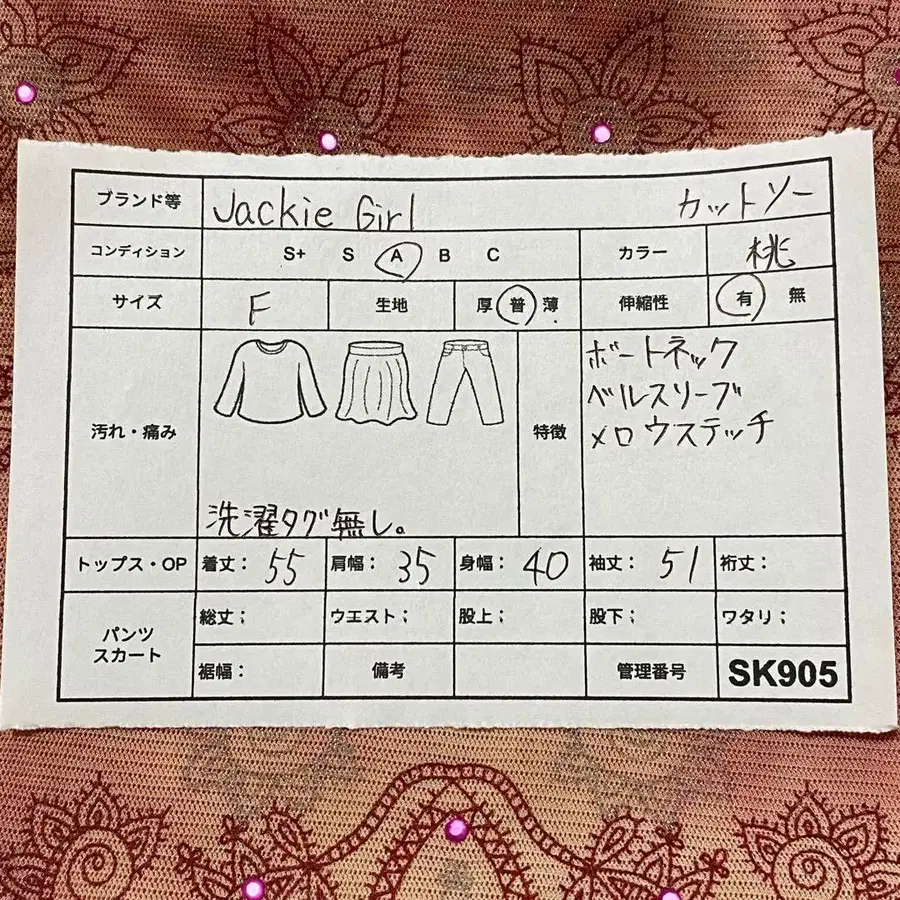 ブランド等 Jackie Girl カットソー
コンディション S+ S A B C カラー 桃
サイズ F 生地 厚 普 薄 伸縮性 有 無
汚れ・痛み 洗濯タグ無し。
特徴 ボートネック
ベルスリーブ
メロウステッチ
トップス・OP 着丈： 55 肩幅： 35 身幅： 40 袖丈： 51 裄丈：
パンツ
スカート
総丈； ウエスト； 股上； 股下； ワタリ；
裾幅： 備考 管理番号 SK905